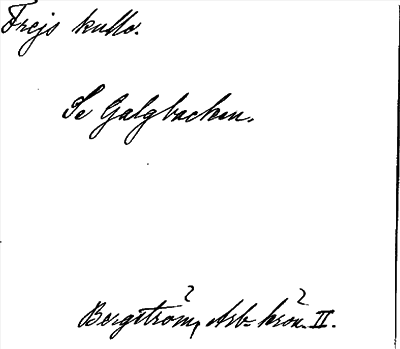 Frejs kulle.
Se Galgbacken.
Bergström, Arb. krön. II.